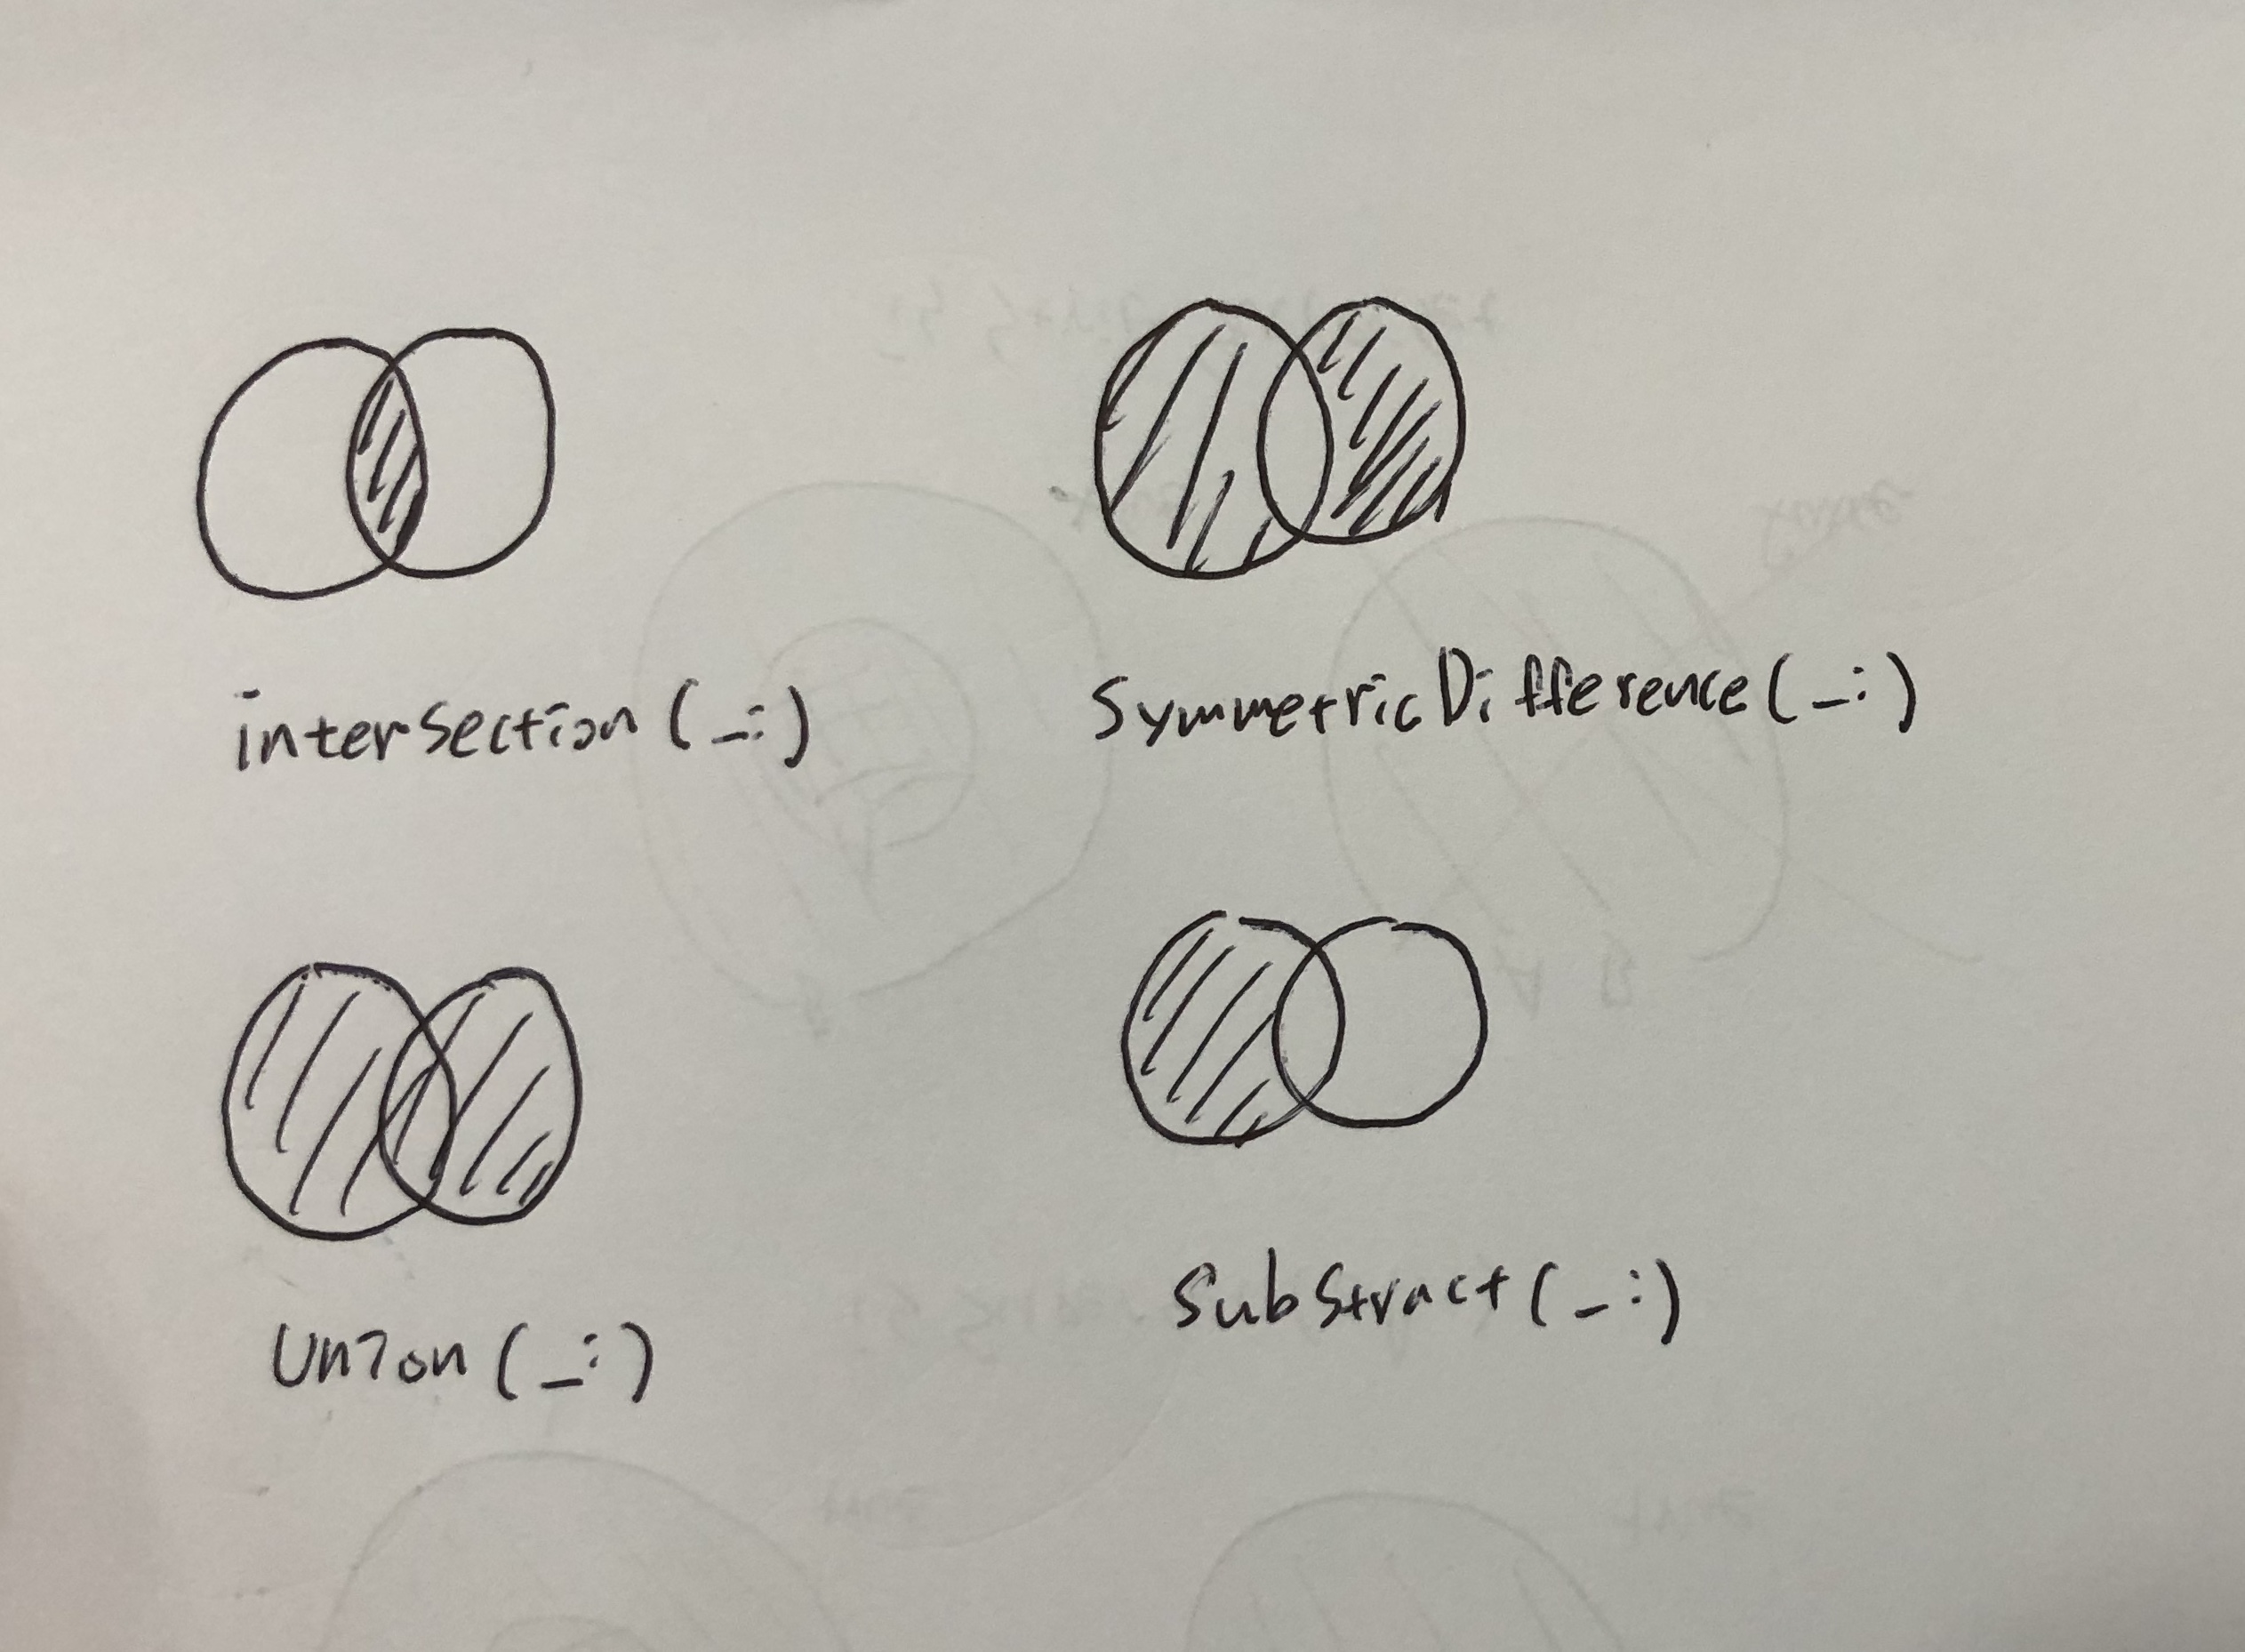 intersection(_:)
SymmetricDifference(_:)
Union(_:)
Substract(_:)